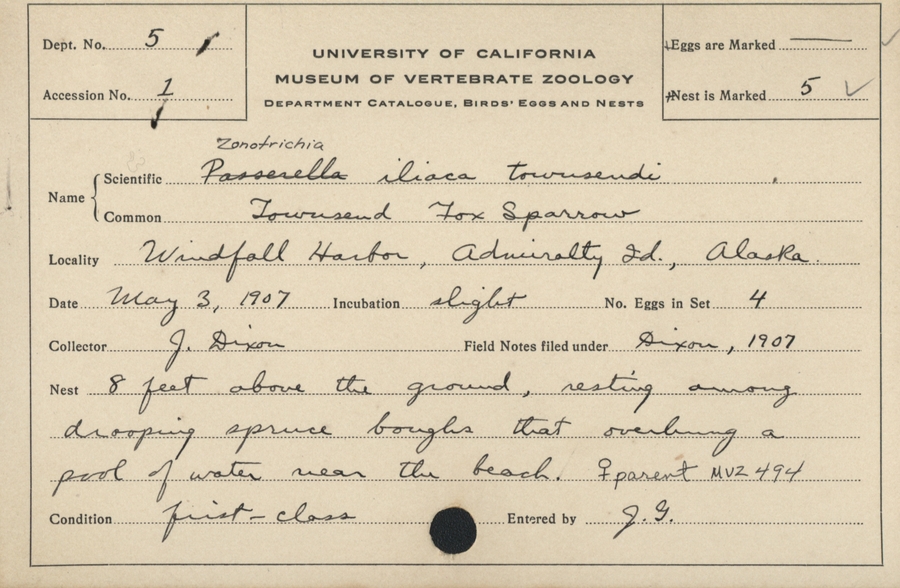 Dept. No. 5
Accession No. 1
UNIVERSITY OF CALIFORNIA
MUSEUM OF VERTEBRATE ZOOLOGY
DEPARTMENT CATALOGUE, BIRDS' EGGS AND NESTS
Eggs are Marked —
Nest is Marked 5 ✓
Zonotrichia
Name { Scientific Passerella iliaca townsendi
Common Townsend Fox Sparrow
Locality Windfall Harbor, Admiralty Id., Alaska.
Date May 3, 1907 Incubation slight No. Eggs in Set 4
Collector J. Dixon Field Notes filed under Dixon, 1907
Nest 8 feet above the ground, resting among
drooping spruce boughs that overhung a
pool of water near the beach. ♀ parent MVZ 494
Condition first-class Entered by J.G.